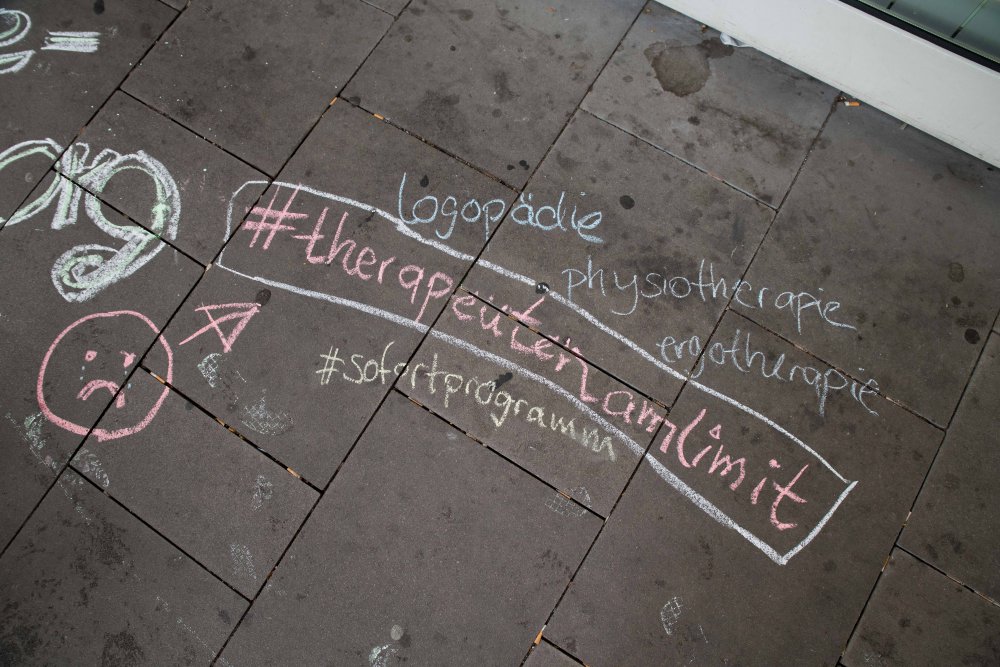 logopädie
#therapeutenamlimit
physiotherapie
ergotherapie
#sofortprogramm